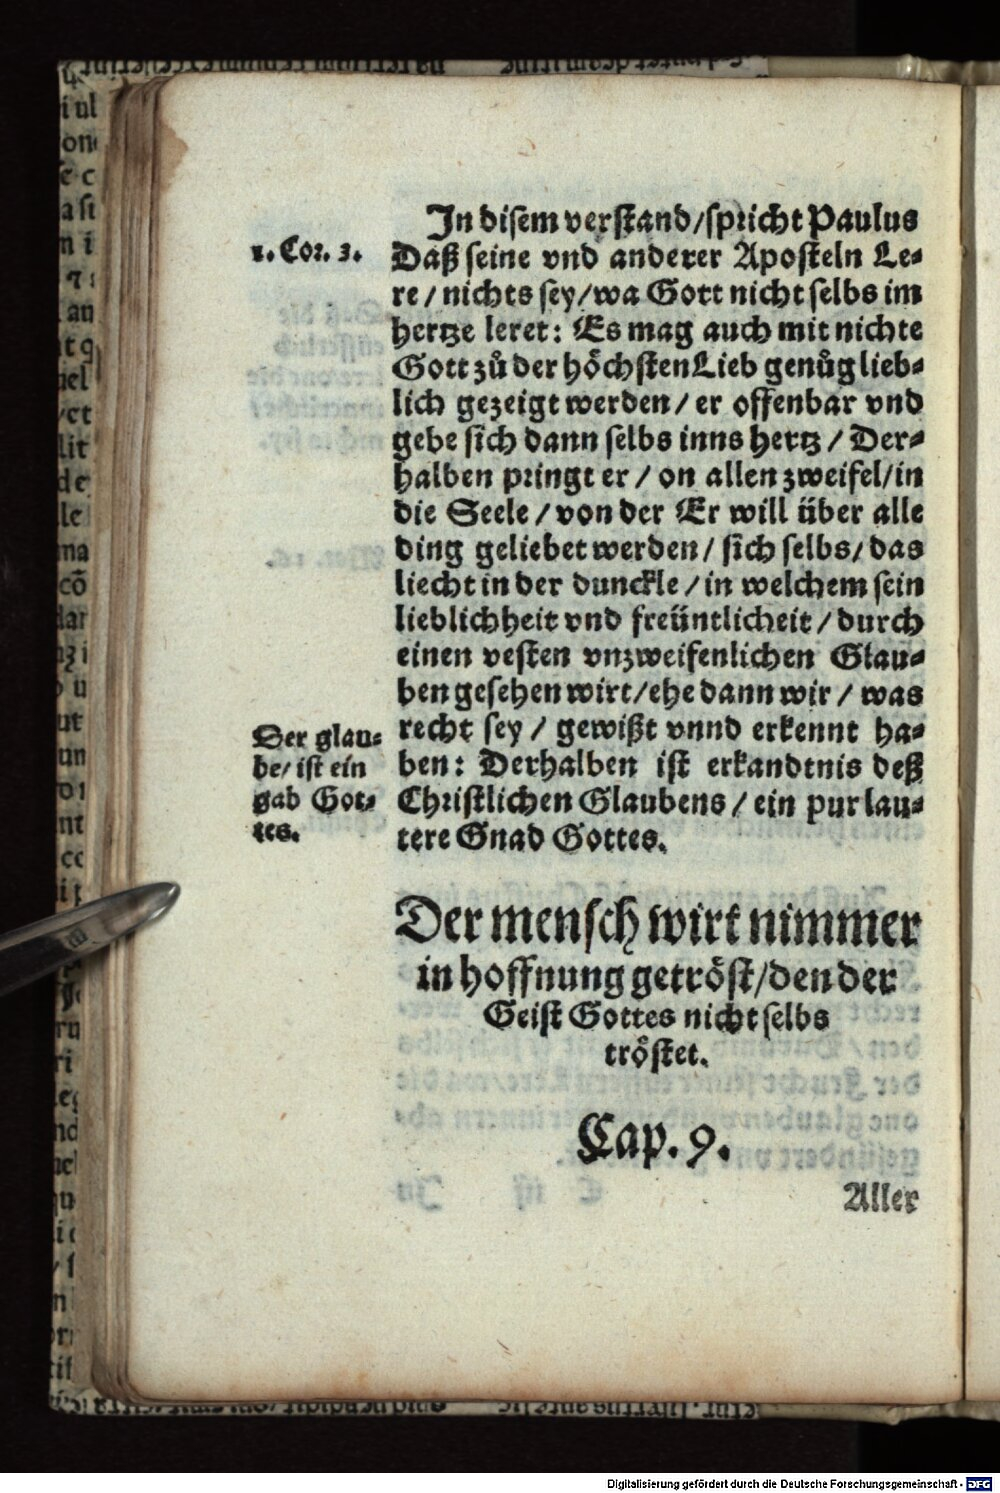 In disem verstand/spricht Paulus
1. Cor. 3.
Daß seine vnd anderer Aposteln Le-
re/nichts sey/wa Gott nicht selbs im
hertze leret: Es mag auch mit nichte
Gott zů der höchsten Lieb genůg lieb-
lich gezeigt werden/er offenbar vnd
gebe sich dann selbs inns hertz/Der-
halben pringt er/on allen zweifel/in
die Seele/von der Er will über alle
ding geliebet werden/sich selbs/das
liecht in der dunckle/in welchem sein
lieblichheit vnd freüntlicheit/durch
einen vesten vnzweifenlichen Glau-
ben gesehen wirt/ehe dann wir/was
recht sey/gewißt vnnd erkennt ha-
ben: Derhalben ist erkandtnis deß
Christlichen Glaubens/ein pur lau-
tere Gnad Gottes.
Der glau-
be/ist ein
gab Got-
tes.
Der mensch wirt nimmer
in hoffnung getröst/den der
Geist Gottes nicht selbs
tröstet.
Cap. 9.
Aller
Digitalisierung gefördert durch die Deutsche Forschungsgemeinschaft - DFG